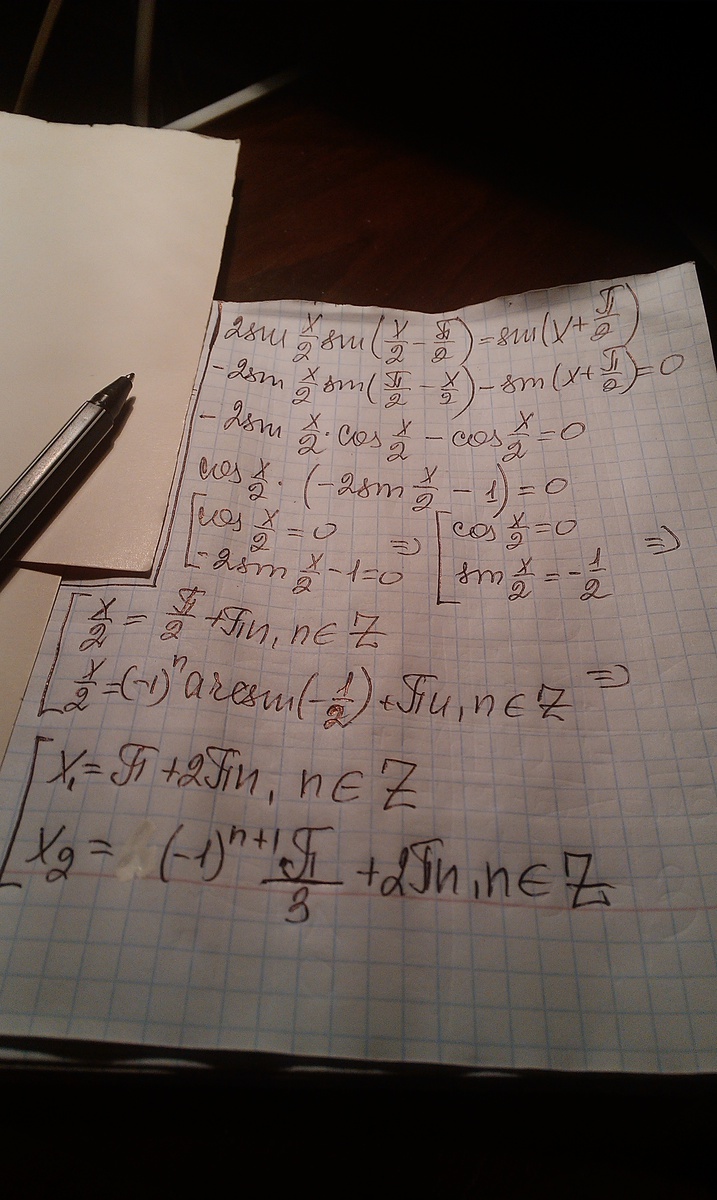 2sin x/2 sin(x/2 - π/2) = sin(x + π/2)
-2sin x/2 sin(π/2 - x/2) - sin(x + π/2) = 0
- 2sin x/2 · cos x/2 - cos x/2 = 0
cos x/2 · (-2sin x/2 - 1) = 0
[cos x/2 = 0 => [cos x/2 = 0 =>
-2sin x/2 - 1 = 0 sin x/2 = -1/2
[x/2 = π/2 + πn, n ∈ Z
x/2 = (-1)^n arcsin(-1/2) + πn, n ∈ Z =>
[x₁ = π + 2πn, n ∈ Z
x₂ = (-1)^(n+1) π/3 + 2πn, n ∈ Z